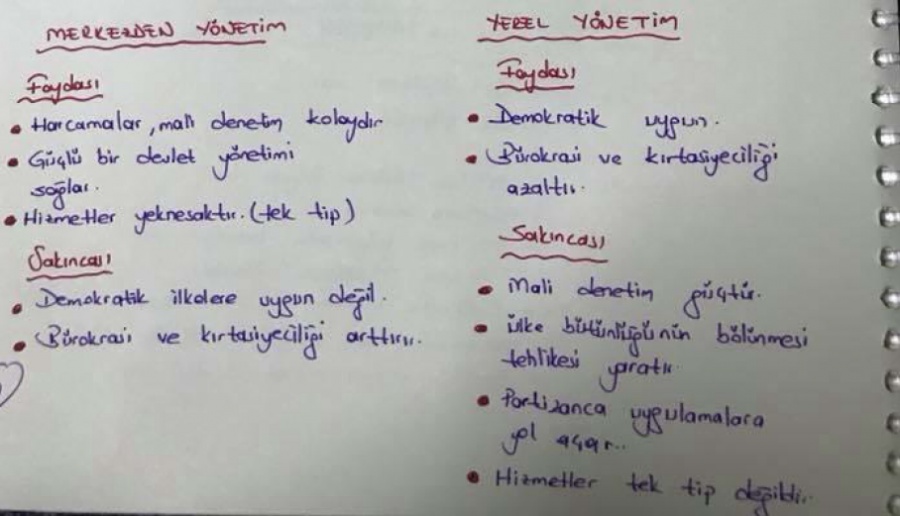 MERKEZDEN YÖNETİM
Faydası
• Harcamalar, mali denetim kolaydır
• Güçlü bir devlet yönetimi
sağlar.
• Hizmetler yeknesaktır. (tek tip)
Sakıncası
• Demokratik ilkelere uygun değil.
• Bürokrasi ve kırtasiyeciliği arttırır.
YEREL YÖNETİM
Faydası
• Demokratik uygun.
• Bürokrasi ve kırtasiyeciliği
azaltır.
Sakıncası
• Mali denetim güçtür.
• ülke bütünlüğünün bölünmesi
tehlikesi yaratır
• Partizanca uygulamalara
yol açar..
• Hizmetler tek tip değildir.